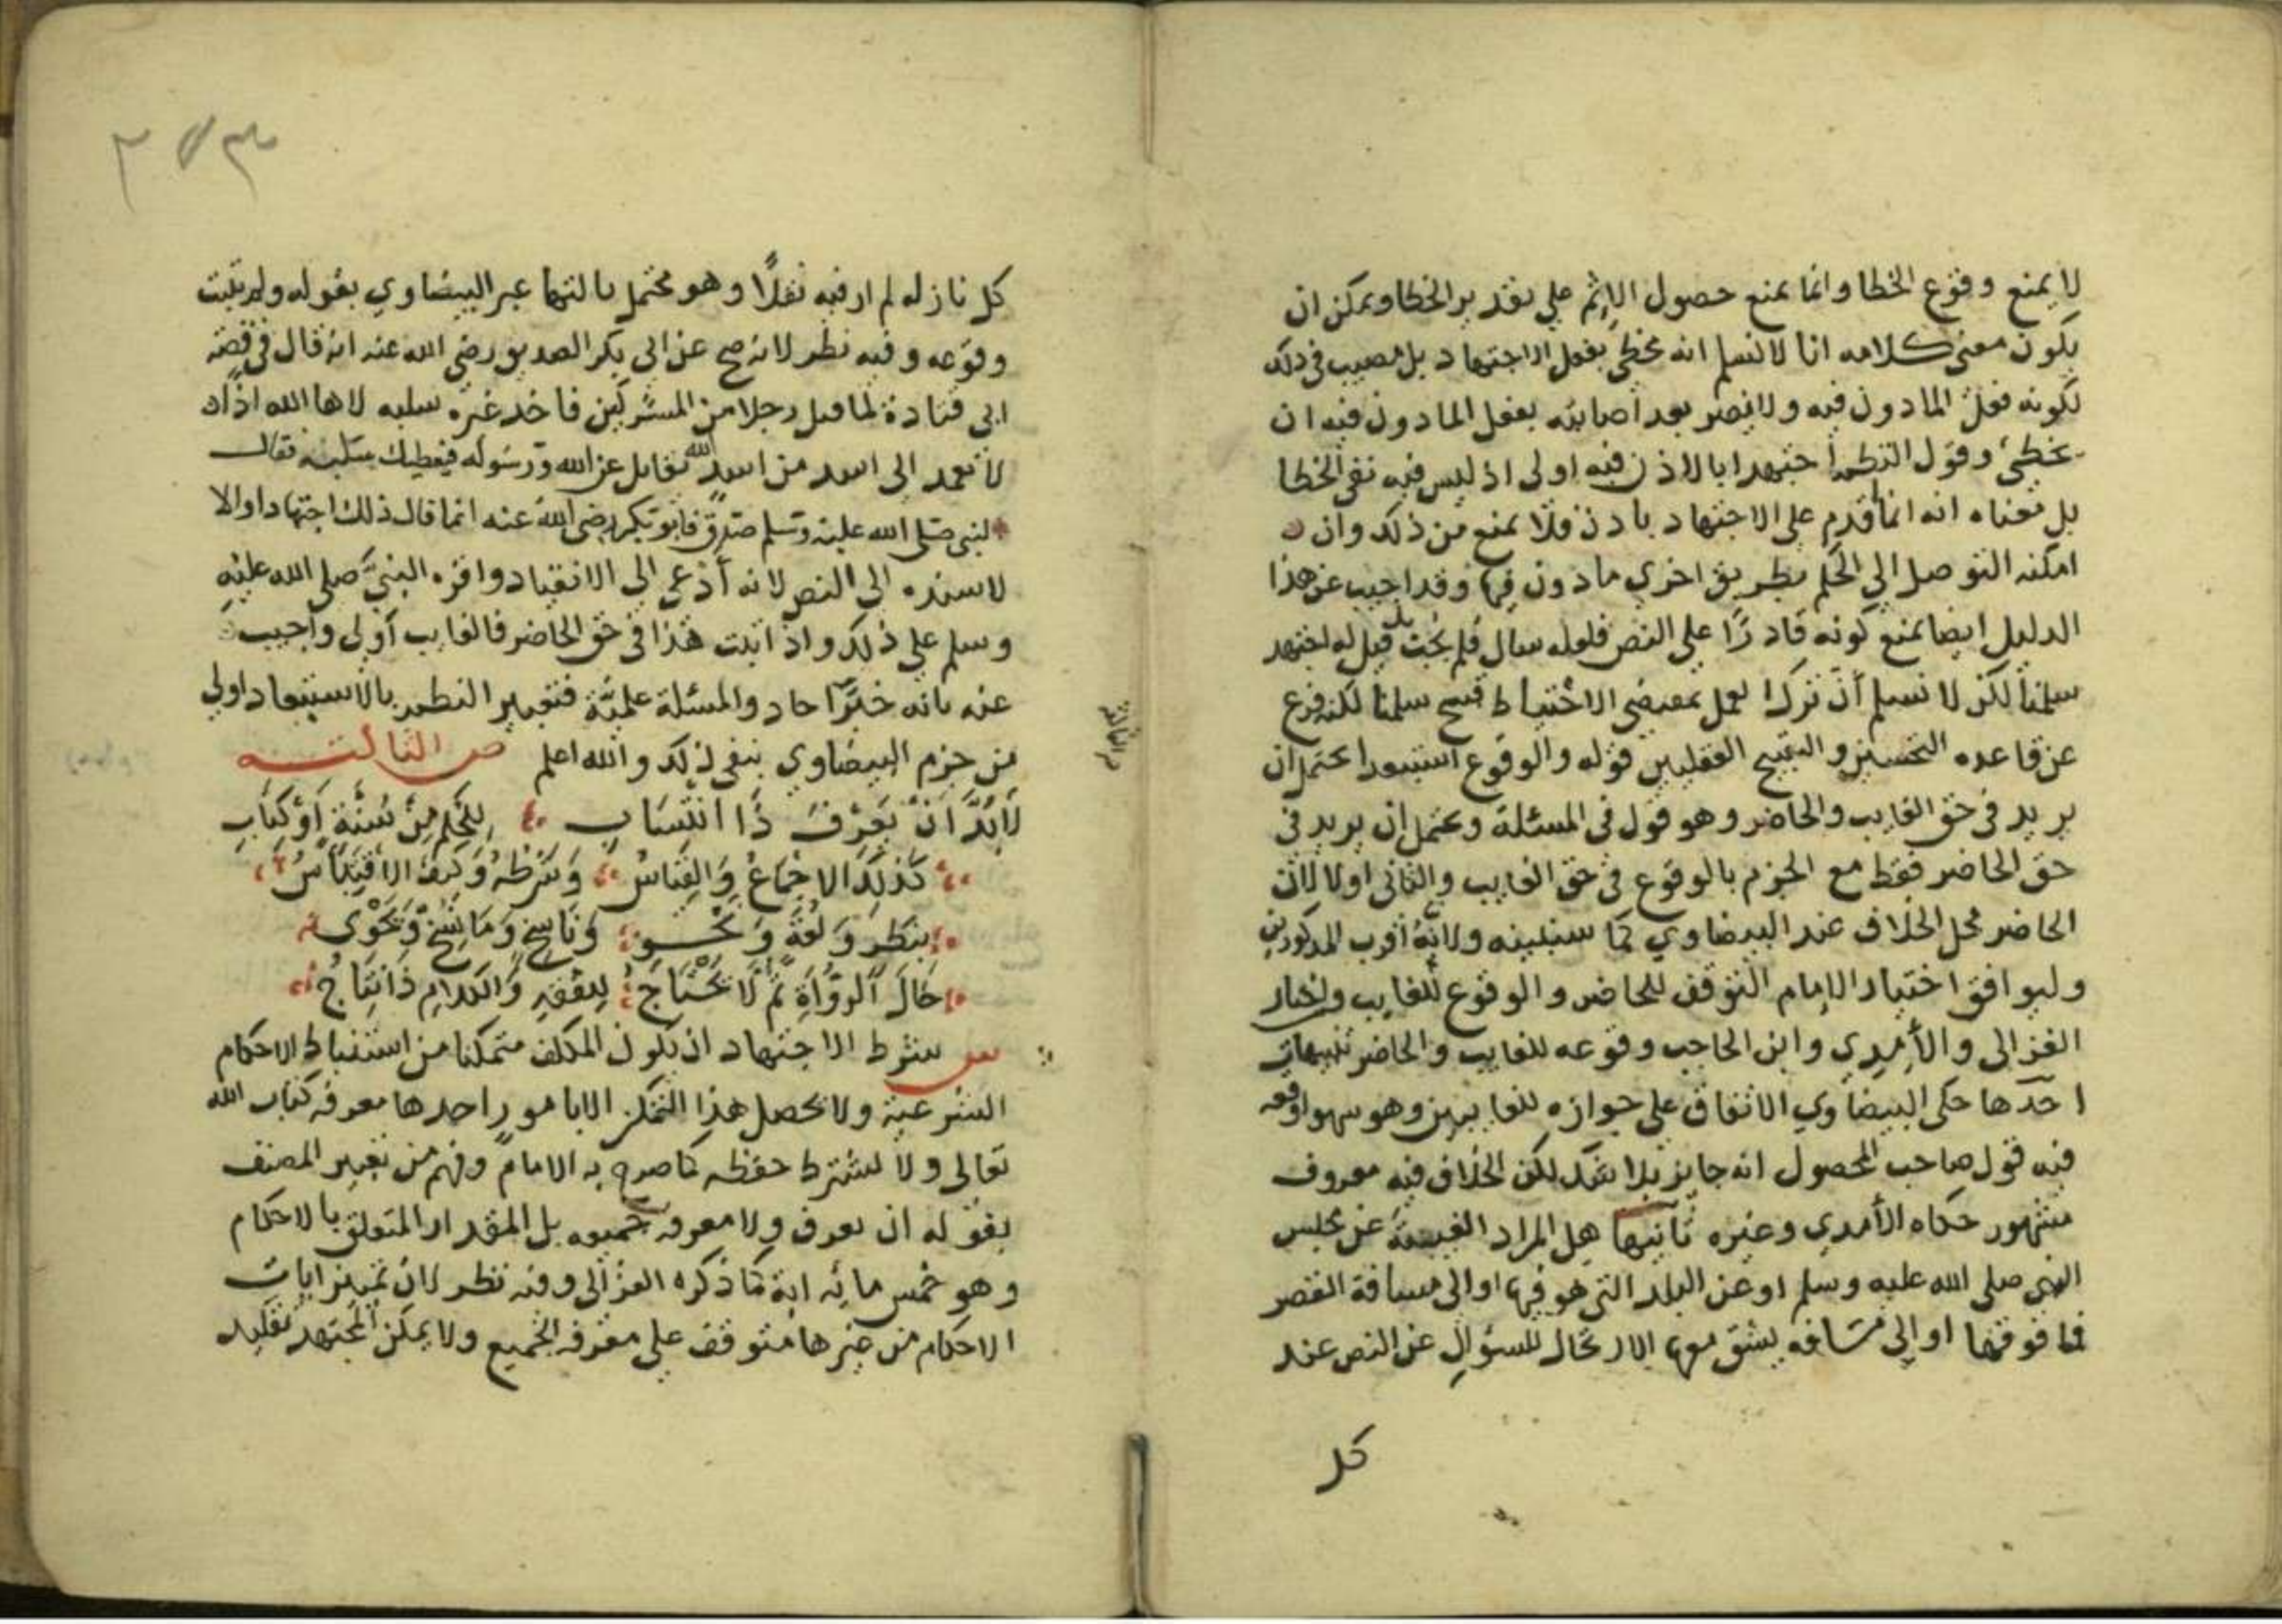 لا يمنع وقوع الخطا وانما يمنع حصول الاثم علي تقدير الخطا ويمكن ان
يكون معنى كلامه انا لا نسلم انه مخطي بفعل الاجتهاد بل مصيب في ذلك
لكونه فعل الماذون فيه ولا يضر بعد اصابته بفعل الماذون فيه ان
يخطي وقول النظم اجتهد ابالاذن فيه اولى اذ ليس فيه نفي الخطا
بل معناه انه انما قدم على الاجتهاد باذن فلا يمنع من ذلك وان
امكنه التوصل الي الحكم بطريق اخري ماذون فيها وقد اجيب عن هذا
الدليل ايضا بمنع كونه قادرًا على النص فلعله سال فلم يجب بل قيل له اجتهد
سلمنا لكن لا نسلم أن ترك العمل بمقتضي الاحتياط قبيح سلمنا لكنه فرع
عن قاعده التحسين والتقبيح العقليين قوله والوقوع استبعدا يحتمل ان
يريد في حق الغايب والحاضر وهو قول في المسئلة ويحتمل ان يريد في
حق الحاضر فقط مع الجزم بالوقوع في حق الغايب والثاني اولا لان
الحاضر محل الخلاف عند البيضاوي كما سنبينه ولانه أقرب المذكورين
وليوافق اختيار الامام التوقف للحاضر والوقوع للغايب واختار
الغزالى والأمدي وابن الحاجب وقوعه للغايب والحاضر تنبيهات
احدها حكى البيضاوي الاتفاق على جوازه للغايبين وهو سهو اوقعه
فيه قول صاحب المحصول انه جايز بلا شك لكن الخلاف فيه معروف
مشهور حكاه الأمدي وغيره ثانيها هل المراد الغيبة عن مجلس
النبي صلى الله عليه وسلم او عن البلد التي هو فيها او الى مسافة القصر
فما فوقها او إلى مسافه يشق معها الارتحال للسؤال عن النص عند
كل
٣٧٣
كل نازله لم ار فيه نقلًا وهو محتمل ثالثها عبر البيضاوي بقوله ولم يثبت
وقوعه وفيه نظر لانه صح عن ابي بكر الصديق رضي الله عنه انه قال في قصة
ابي قتادة لما قتل رجلا من المشركين فاخذ غيره سلبه لاها الله اذًا
لا يعمد الى اسد من اسد الله يقاتل عن الله ورسوله فيعطيك سلبه فقال
النبي صلى الله عليه وسلم صدق فابو بكر رضي الله عنه انما قال ذلك اجتهادا والا
لاسنده الى النص لانه أدعى الى الانقياد واقره النبي صلى الله عليه
وسلم علي ذلك واذا ثبت هذا في حق الحاضر فالغايب أولى وأجيب
عنه بانه خبر آحاد والمسئلة علمية فتعبير النظم بالاستبعاد اولي
من جزم البيضاوي بنفي ذلك والله اعلم ص الثالثه
لَا بُدَّ أنْ يَعْرِفَ ذَا انْتِسَابِ لِلحُكْمِ مِنْ سُنَّةِ أَوْ كِتَابِ
كَذَلِكَ الاِجْمَاعُ وَالقِيَاسُ وَشَرْطُهُ وَكَيْفَ الاقْتِبَاسُ
بِنَظَرٍ وَلُغَةٍ وَنَحْوِ وَنَاسِخٍ وَمَا نُسِخْ وَيَحْوِى
حَالَ الرُّوَاةِ ثُمَّ لَا يَحْتَاجُ لِلفِقْهِ وَالكَلامِ ذَا نِتَاجُ
س شرط الاجتهاد ان يكون المكلف متمكنا من استنباط الاحكام
الشرعية ولا يحصل هذا التمكن الا بامور احدها معرفه كتاب الله
تعالى ولا يشترط حفظه كما صرح به الامام وفهم من تعبير المصنف
بقوله ان يعرف ولا معرفه جميعه بل المقدار المتعلق بالاحكام
وهو خمس مائه اية كما ذكره الغزالى وفيه نظر لان تمييز ايات
الاحكام من غيرها متوقف علي معرفه الجميع ولا يمكن المجتهد تقليد